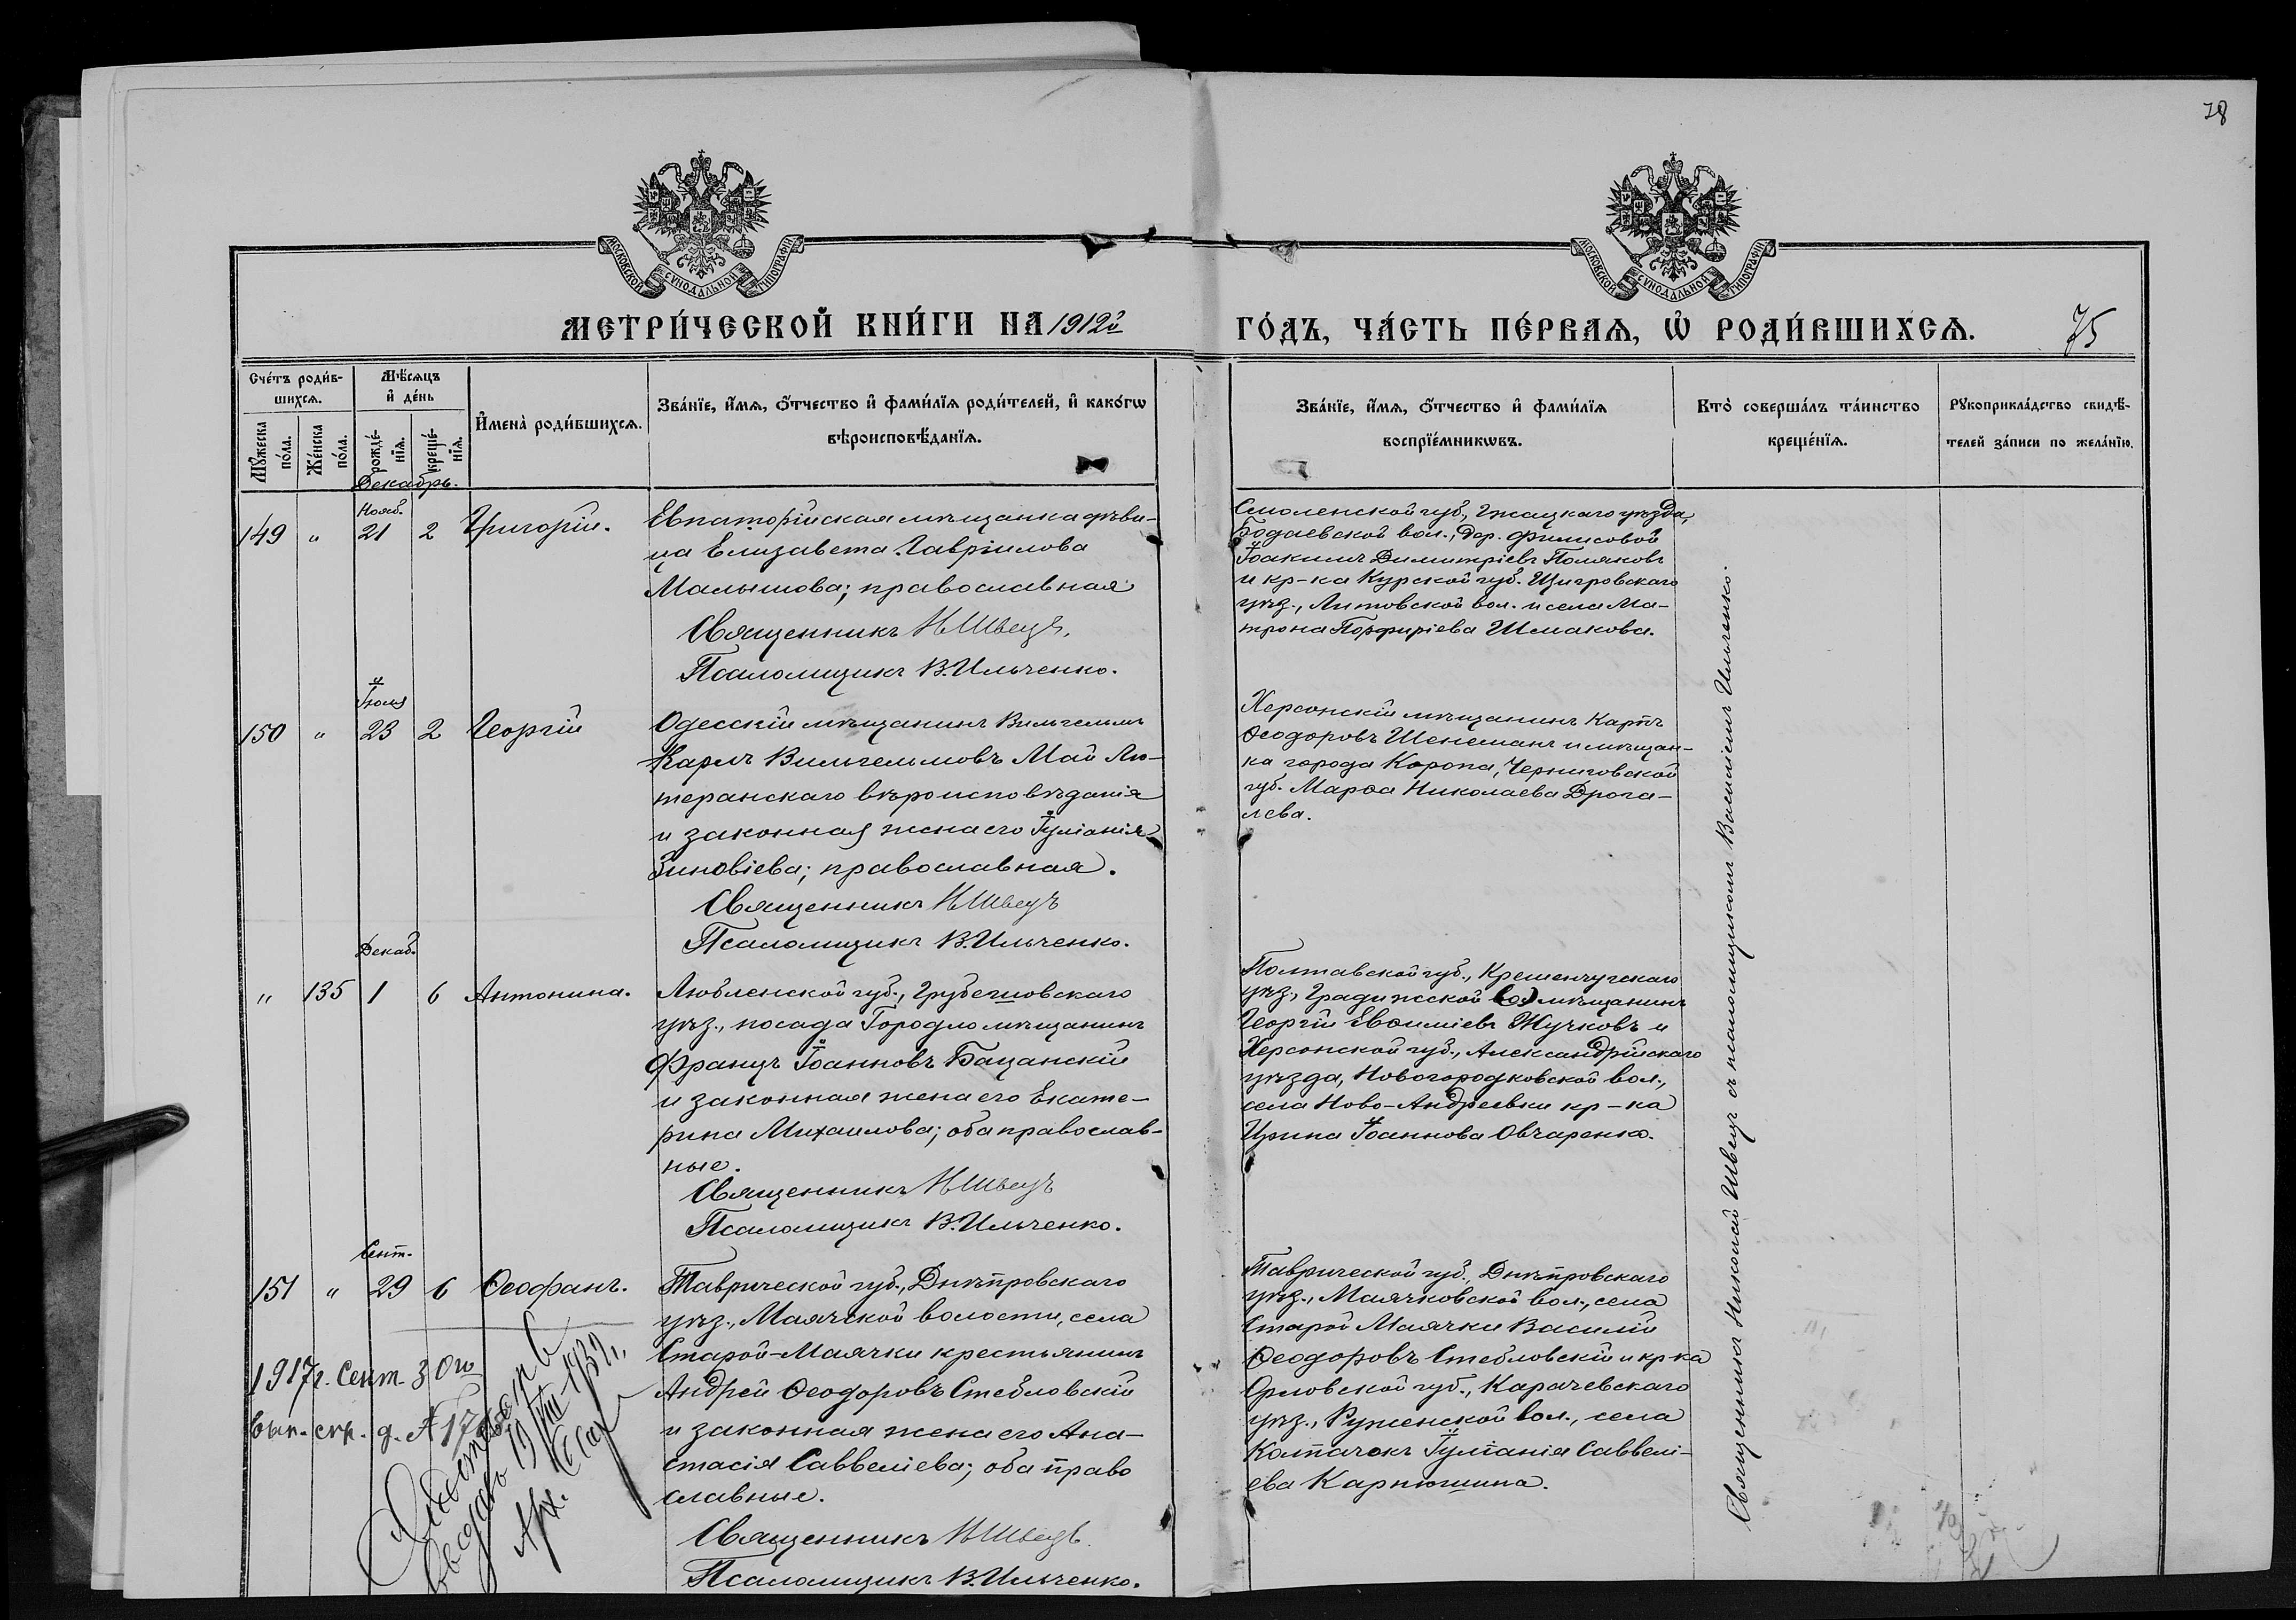 78
МОСКОВСКОЙ СѴНОДАЛЬНОЙ ТИПОГРАФІИ
МОСКОВСКОЙ СѴНОДАЛЬНОЙ ТИПОГРАФІИ
МЕТРИ́ЧЕСКОЙ КНИ́ГИ НА 1912й
ГО́ДЪ, ЧА́СТЬ ПЕ́РВАѦ, Ѡ҆ РОДИ́ВШИХСѦ.
75
Сче́тъ роди́в-
шихсѧ.
Мꙋ́жеска по́ла.
Же́нска по́ла.
Мѣ́сѧцъ
и҆ де́нь
рожде́-
нїѧ.
креще́-
нїѧ.
И҆мена̀ роди́вшихсѧ.
Зва́нїе, и҆́мѧ, ѻ҆́тчество и҆ фами́лїѧ роди́телей, и҆ како́гѡ
вѣроисповѣ́данїѧ.
Зва́нїе, и҆́мѧ, ѻ҆́тчество и҆ фами́лїѧ
воспрїе́мникѡвъ.
Кто̀ соверша́лъ та́инство
креще́нїѧ.
Рꙋкоприкла́дство свидѣ́-
телей за́писи по жела́нїю.
Декабрь.
Нояб.
149 " 21 2 Григорій.
Евпаторійская мѣщанка дѣви-
ца Елизавета Гавріилова
Малышова; православная
Священникъ Н Швецъ.
Псаломщикъ В. Ильченко.
Смоленской губ., Гжацкаго уѣзда,
Бодаевской вол., дер. Филисовой
Іоакимъ Димитріевъ Поляковъ
и кр-ка Курской губ. Щигровскаго
уѣз., Липовской вол. и села Ма-
трона Порфиріева Шмакова.
Іюля
150 " 23 2 Георгій
Одесскій мѣщанинъ Вильгельмъ
Карлъ Вильгельмовъ Май Лю-
теранскаго вѣроисповѣданія
и законная жена его Іуліанія
Зиновіева; православная.
Священникъ Н Швецъ
Псаломщикъ В. Ильченко.
Херсонскій мѣщанинъ Карпъ
Ѳеодоровъ Шенеманъ и мѣщан-
ка города Коропа, Черниговской
губ. Марѳа Николаева Дрога-
лева.
Декаб.
" 135 1 6 Антонина.
Люблинской губ., Грубешовскаго
уѣз., посада Городло мѣщанинъ
Францъ Іоанновъ Бацанскій
и законная жена его Екате-
рина Михаилова; оба православ-
ные.
Священникъ Н Швецъ
Псаломщикъ В. Ильченко.
Полтавской губ., Кременчугскаго
уѣз., Градижской вол мѣщанинъ
Георгій Евѳиміевъ Жучковъ и
Херсонской губ., Александрійскаго
уѣзда, Новогородковской вол.,
села Ново-Андреевки кр-ка
Ирина Іоаннова Овчаренко.
Сент.
151 " 29 6 Ѳеофанъ.
Таврической губ., Днѣпровскаго
уѣз., Маячской волости, села
Старой-Маячки крестьянинъ
Андрей Ѳеодоровъ Стебловскій
и законная жена его Ана-
стасія Саввеліева; оба право
славные.
Священникъ Н Швецъ
Псаломщикъ В. Ильченко.
Таврической губ., Днѣпровскаго
уѣз., Маячковской вол., села
Старой Маячки Василій
Ѳеодоровъ Стебловскій и кр ка
Орловской губ., Карачевскаго
уѣз., Руженской вол., села
Колпачокъ Іуліанія Саввелі-
ева Карпюшина.
1917 г. Сент. 30го
вып. скр. д.
19 VIII 1939
Арх.
Священникъ Николай Швецъ съ псаломщикомъ Василіемъ Ильченко.